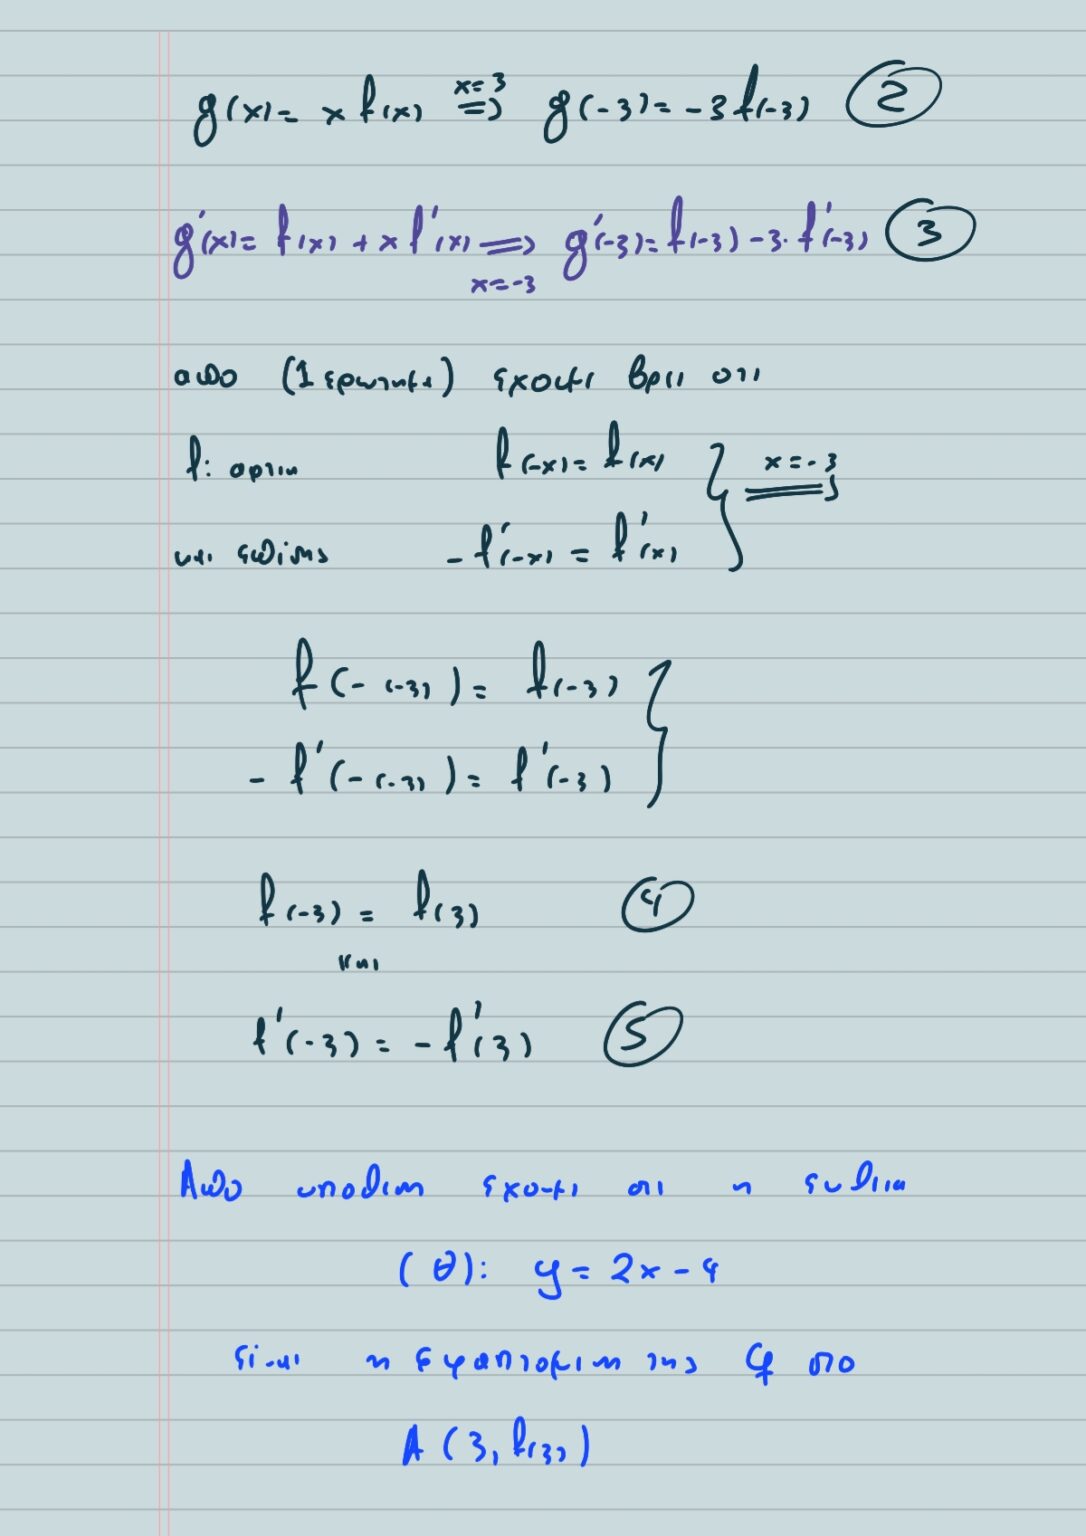 g(x) = x f(x) x=3 ⇒ g(-3) = -3 f(-3) (2)
g'(x) = f(x) + x f'(x) ⇒ x=-3 g'(-3) = f(-3) - 3· f'(-3) (3)
απο (1 ερωτημα) εχουμε βρει οτι
f: αρτια f(-x) = f(x) } x=-3 ⇒
και επισης -f'(-x) = f'(x)
f(-(-3)) = f(-3) }
-f'(-(-3)) = f'(-3)
f(-3) = f(3) (4)
και
f'(-3) = -f'(3) (5)
Απο υποθεση εχουμε οτι η ευθεια
(θ): y = 2x - 4
ειναι η εφαπτομενη της Cf στο
A(3, f(3))